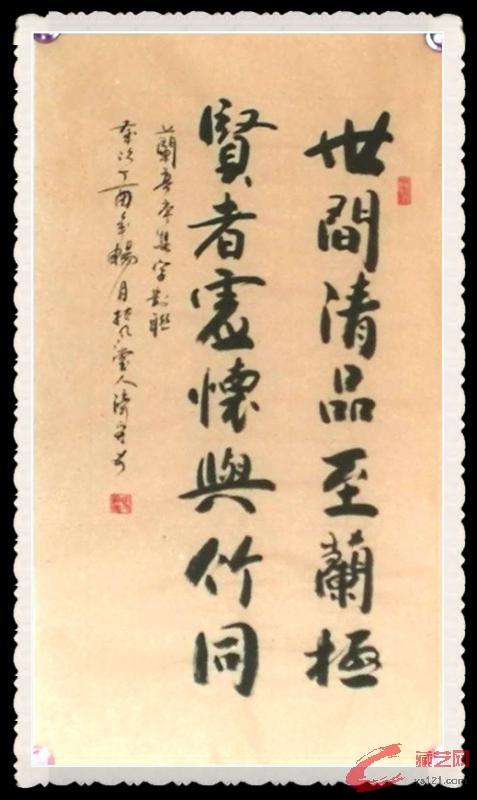 世間清品至蘭極
賢者虛懷與竹同
蘭亭序集字對聯
丁酉年暢月
藏艺网
cs121.com